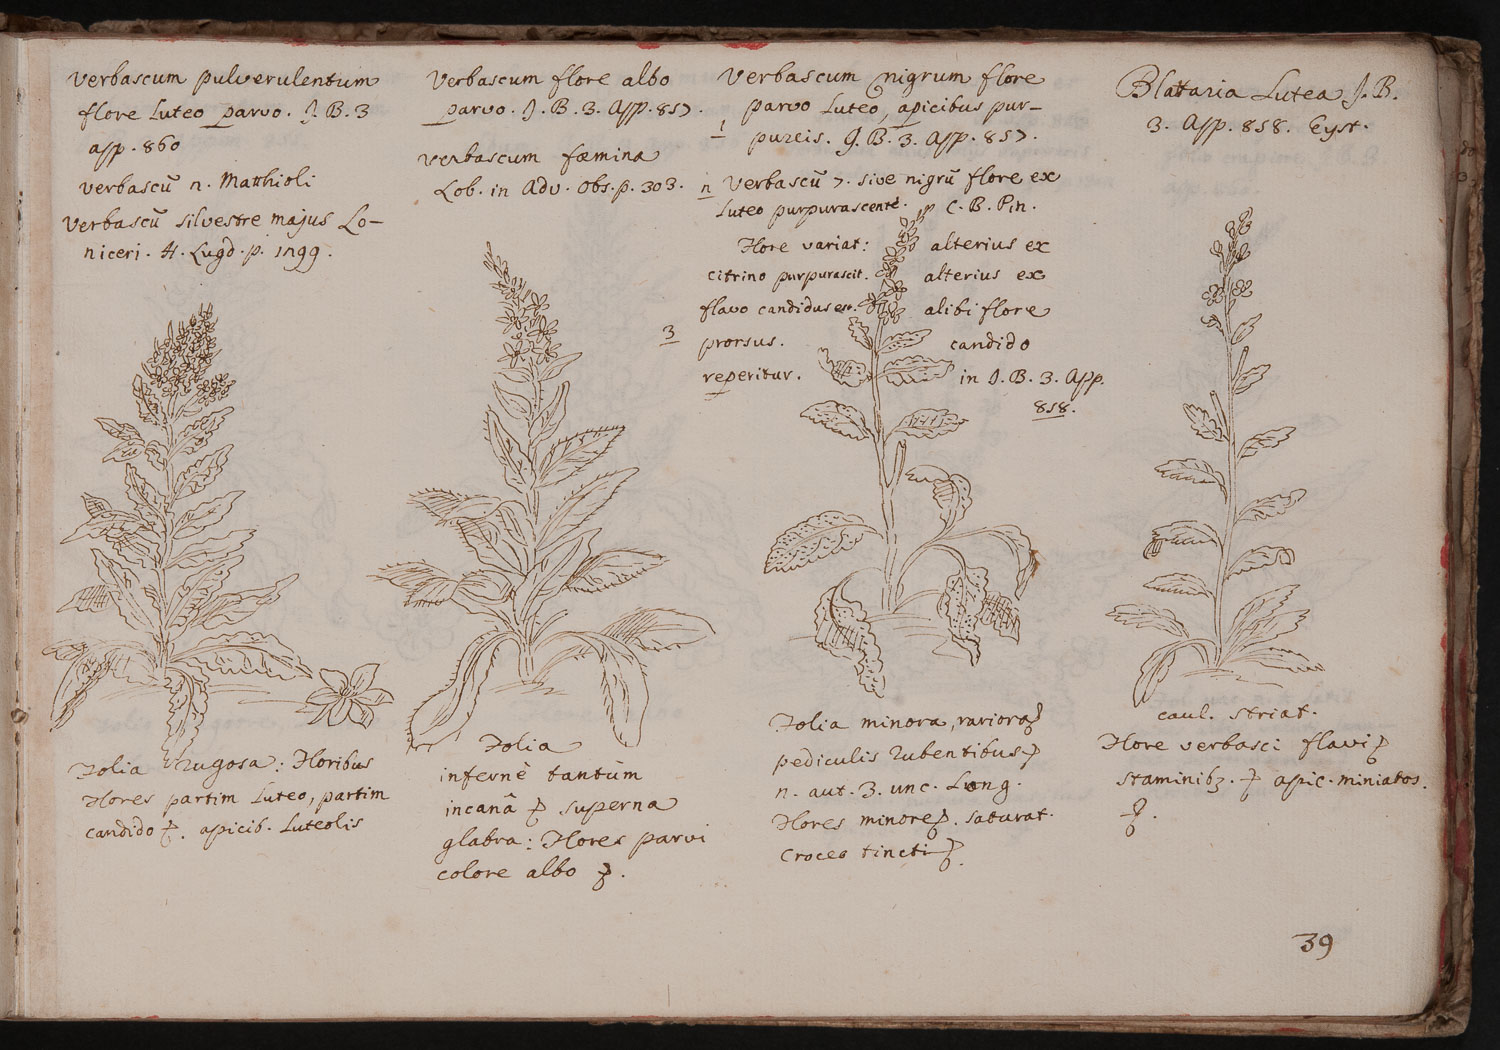 Verbascum pulverulentum
flore luteo parvo. J. B. 3
app. 860
verbascū n. Matthioli
Verbascū silvestre majus Lo-
niceri. H. Lugd. p. 1299.
Folia rugosa: Floribus
Flores partim luteo, partim
candido apicib. luteolis
Verbascum flore albo
parvo. J. B. 3. App. 857.
Verbascum fœmina
Lob. in Adv. Obs. p. 303.
Folia
infernè tantùm
incanâ superna
glabra: Flores parvi
colore albo
Verbascum nigrum flore
1 parvo luteo, apicibus pur-
pureis. J. B. 3. App. 857.
n Verbascū 7. sive nigrū flore ex
luteo purpurascente. C. B. Pin.
Flore variat: alterius ex
citrino purpurascit. alterius ex
flavo candidus est. alibi flore
3 prorsus. candido
reperitur. in J. B. 3. App.
858.
Folia minora, rariora
pediculis rubentibus
n. aut. 3. unc. Long.
Flores minores. saturat.
croceo tincti
Blattaria Lutea J. B.
3. App. 858. Eyst.
caul. striat.
Flore verbasci flavi
staminib9. apic. miniatos.
39